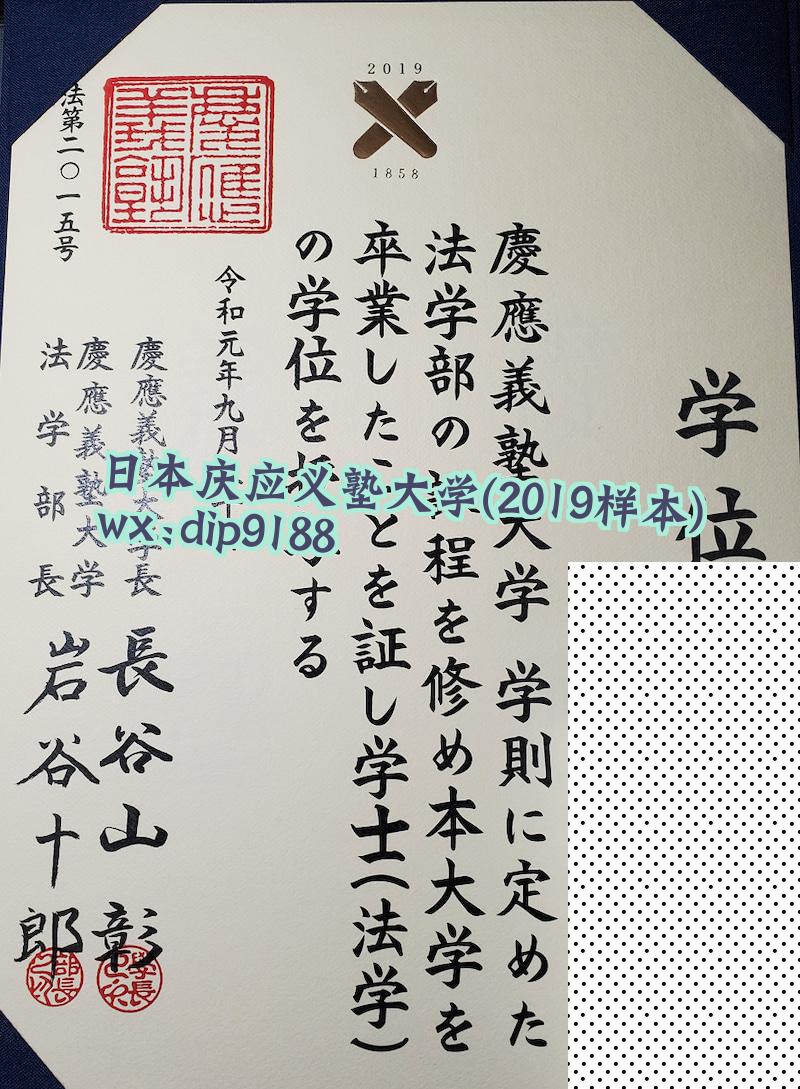 学位
慶應義塾大学 学則に定めた
法学部の課程を修め本大学を
卒業したことを証し学士(法学)
の学位を授与する
2019
1858
令和元年九月
慶應義塾大学長
長谷山 彰
慶應義塾大学
法学部長
岩谷十郎
法第二〇一五号
慶應義塾
学長
部長
日本庆应义塾大学(2019样本)
wx:dip9188